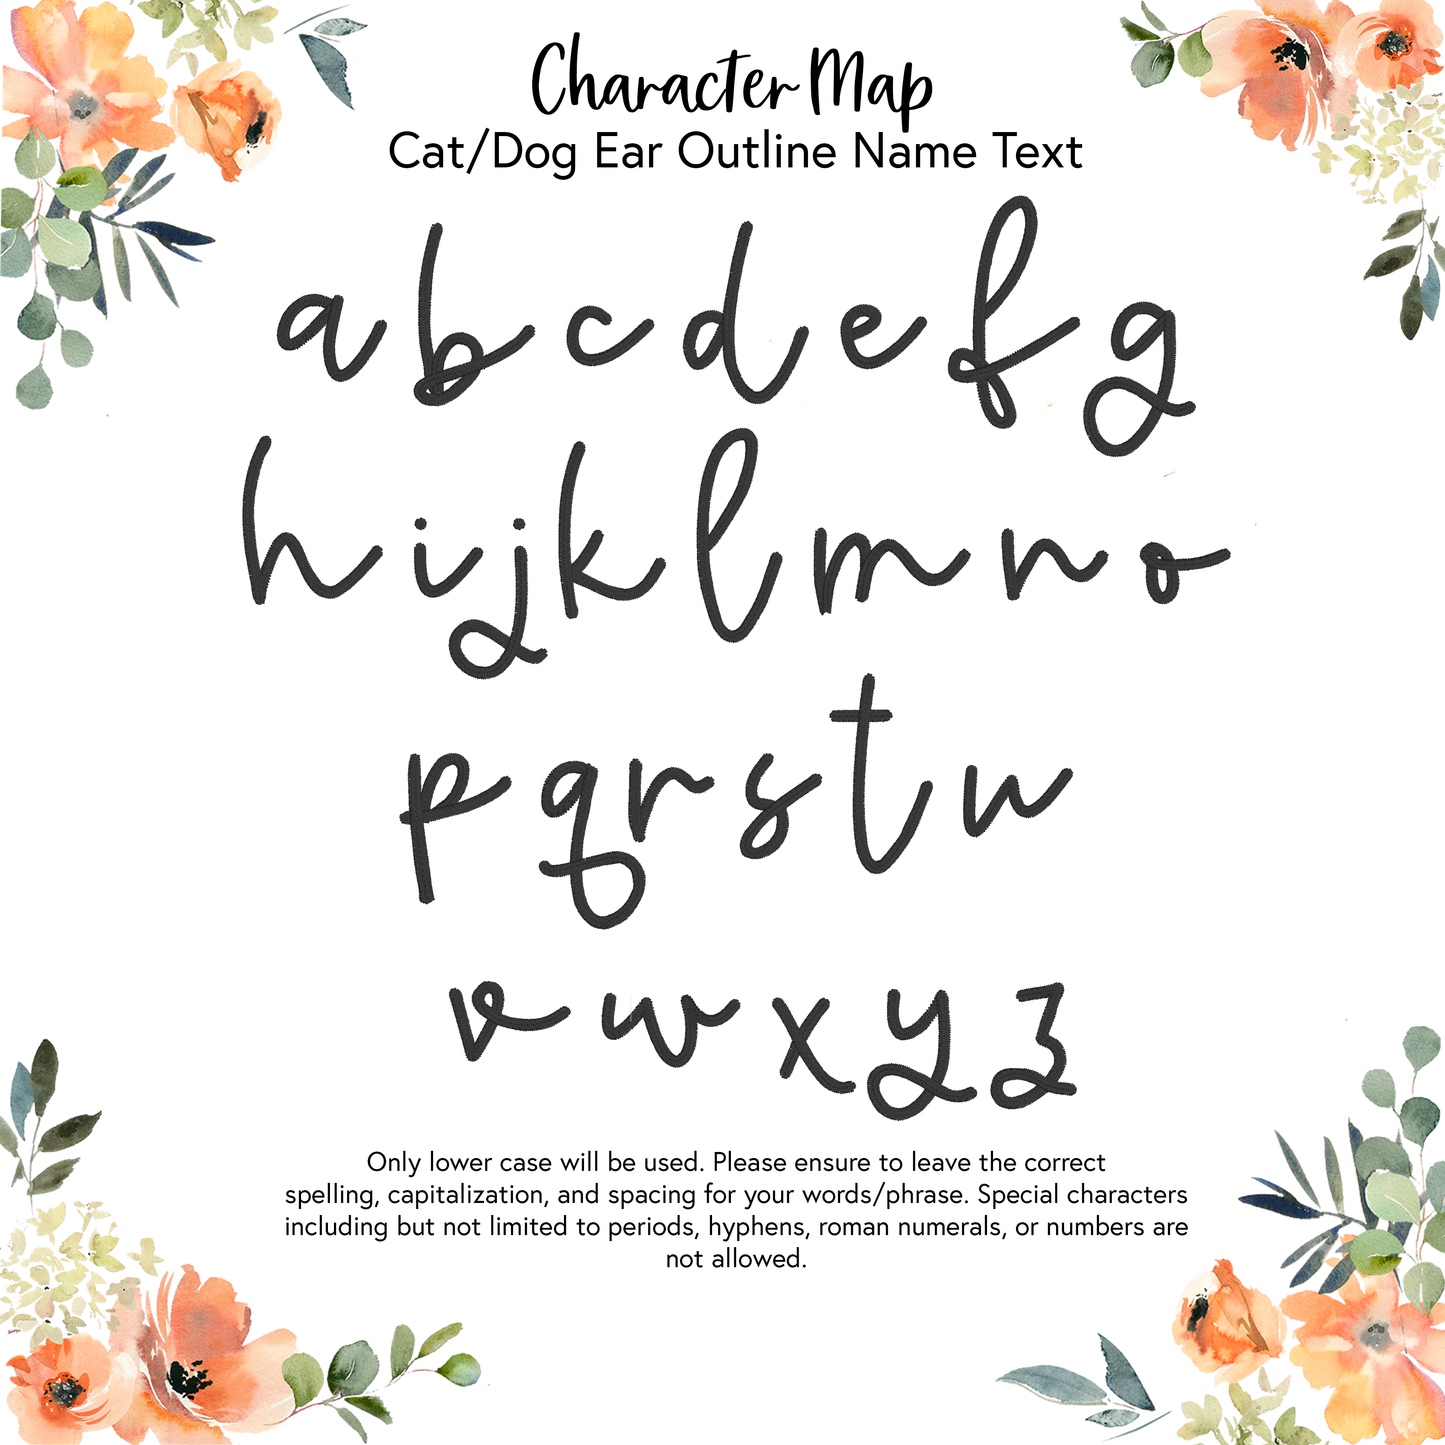 Character Map
Cat/Dog Ear Outline Name Text
a b c d e f g
h i j k l m n o
p q r s t u
v w x y z
Only lower case will be used. Please ensure to leave the correct
spelling, capitalization, and spacing for your words/phrase. Special characters
including but not limited to periods, hyphens, roman numerals, or numbers are
not allowed.